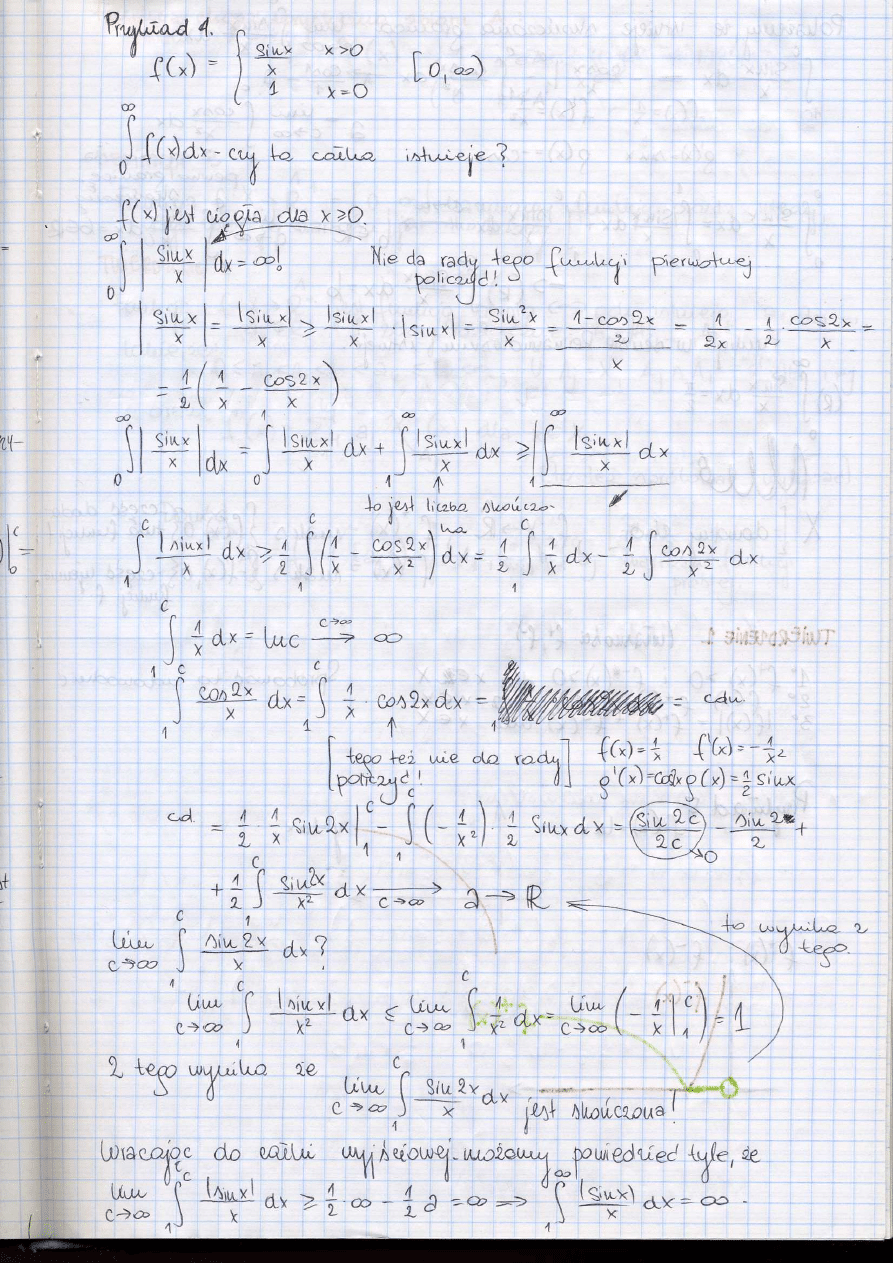 Przykład 1.
f(x) = { sinx/x x>0 [0,∞)
1 x=0
∫₀^∞ f(x)dx - czy ta całka istnieje?
f(x) jest ciągła dla x≥0.
∫₀^∞ |sinx/x| dx = ∞! Nie da rady tego funkcji pierwotnej
policzyć!
|sinx/x| = |sinx|/x ≥ |sinx|/x · |sinx| = sin²x/x = ((1-cos2x)/2)/x = 1/2x - 1/2 · cos2x/x =
= 1/2 (1/x - cos2x/x)
∫₀^∞ |sinx/x| dx = ∫₀^1 |sinx|/x dx + ∫₁^∞ |sinx|/x dx ≥ |∫₁^∞ |sinx|/x dx
to jest liczba skończo-
na
∫₁^c |sinx|/x dx ≥ 1/2 ∫₁^c (1/x - cos2x/x²) dx = 1/2 ∫₁^c 1/x dx - 1/2 ∫ cos2x/x² dx
∫₁^c 1/x dx = lnc →(c→∞) ∞
∫₁^c cos2x/x dx = ∫₁^c 1/x · cos2x dx = = cdn
[tego też nie da rady] f(x)=1/x f'(x)=-1/x²
policzyć! g'(x)=cos2x g(x)=1/2 sinx
cd. = 1/2 · 1/x sin2x |₁^c - ∫₁^c (-1/x²) · 1/2 sinx dx = sin2c/2c →0 - sin2/2 +
+ 1/2 ∫₁^c sin2x/x² dx →(c→∞) a → ℝ
to wynika z
tego.
lim c→∞ ∫₁^c sin2x/x dx?
lim c→∞ ∫₁^c |sinx|/x² dx ≤ lim c→∞ ∫₁^c 1/x² dx = lim c→∞ (-1/x |₁^c) = 1
Z tego wynika że lim c→∞ ∫₁^c sin2x/x dx jest skończona!
Wracając do całki wyjściowej możemy powiedzieć tyle, że
lim c→∞ ∫₁^c |sinx|/x dx ≥ 1/2 · ∞ - 1/2 a = ∞ ⟹ ∫₁^∞ |sinx|/x dx = ∞.